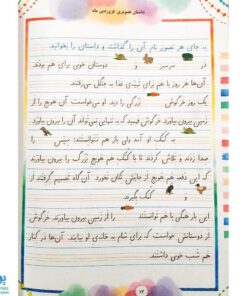 داستان تصویری فروردین ماه
به جای هر تصویر نام آن را گذاشته و داستان را بخوانید
در سرسبز و دوستان خوبی برای هم بودند.
آن‌ها هر روز با هم برای تهیه‌ی غذا به جنگل می‌رفتند
یک روز خرگوش بزرگی را دید. او می‌خواست آن هویج را از
زمین بیرون بیاورد. خرگوش فهمید که به تنهایی نمی‌تواند آن را بیرون بیاورد
به کمک او آمد ولی باز هم نتوانستند؛ سپس را
صدا زدند و تلاش کردند تا با کمک هم هویج بزرگ را بیرون بیاورند
که این دفعه هم هویج از جایش تکان نخورد. آن‌گاه تصمیم گرفتند از
و کمک بگیرند.
این بار همگی با هم توانستند را از زمین بیرون بیاورند. خرگوش
از دوستانش خواست که برای شام به خانه‌ی او بیایند. آن‌ها در کنار
هم شب خوبی داشتند
۷۲